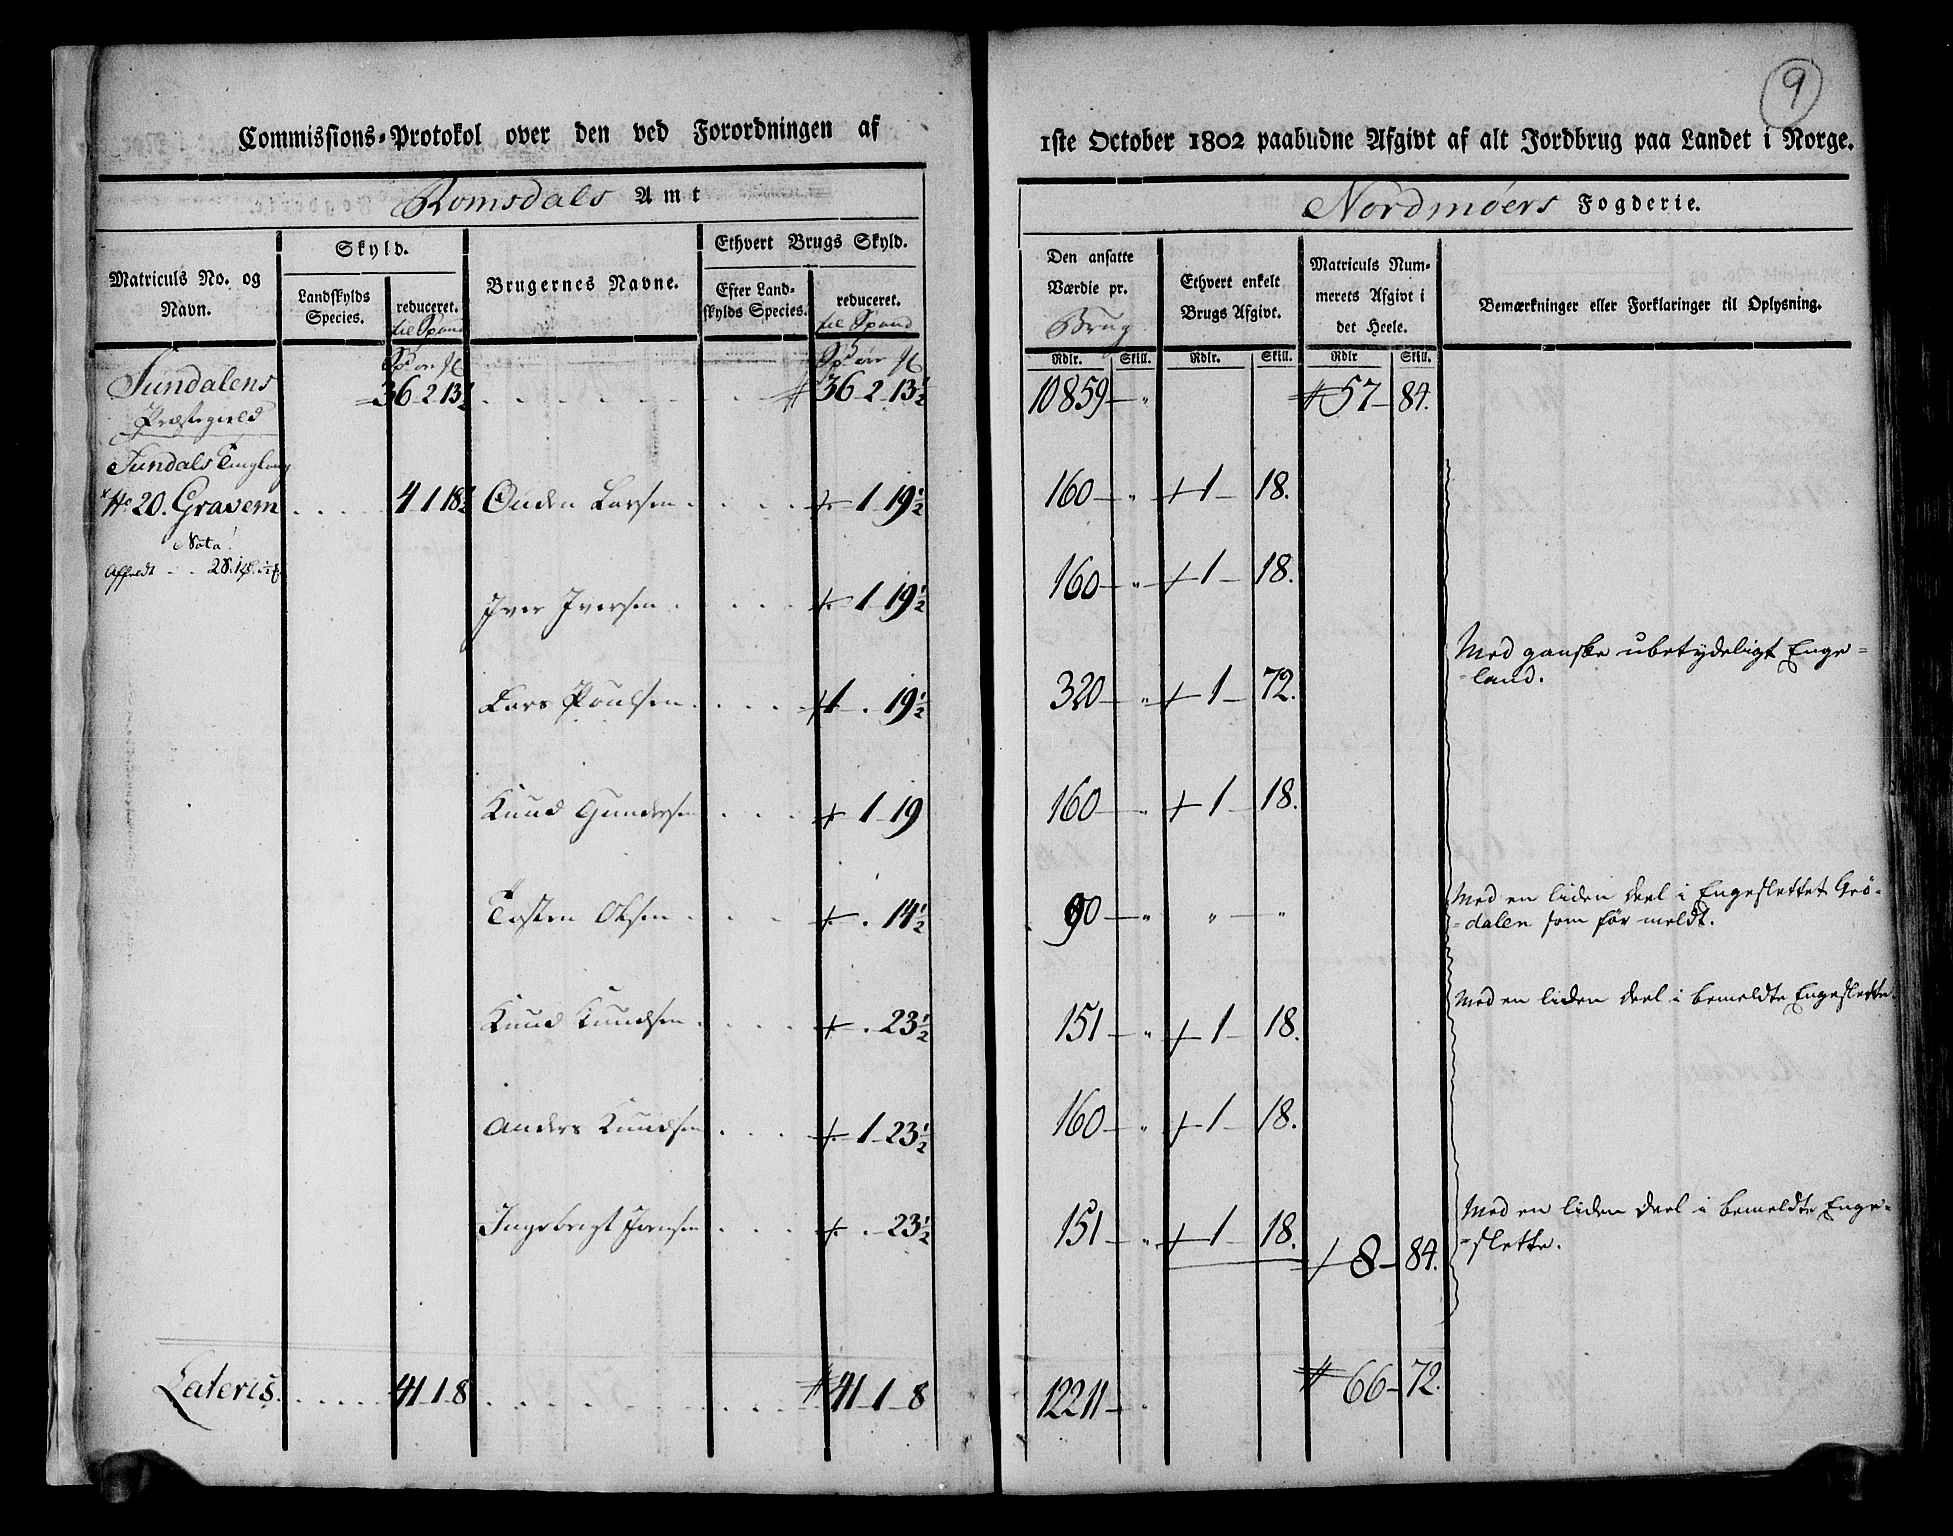 9
Commissions-Protokol over den ved Forordningen af
1ste October 1802 paabudne Afgivt af alt Jordbrug paa Landet i Norge.
Romsdals Amt
Nordmøers Fogderie.
Matriculs No. og Navn.
Skyld.
Landskylds Species.
reduceret. til Spand
Brugernes Navne.
Ethvert Brugs Skyld.
Efter Landskylds Species.
reduceret. til Spand
Den ansatte Værdie pr. Brug
Ethvert enkelt Brugs Afgivt.
Matriculs Nummerets Afgivt i det Heele.
Bemærkninger eller Forklaringer til Oplysning.
Rdlr. Skill. Rdlr. Skill. Rdlr Skill.
Sundalens 36 2 13½ 36 2 13½ 10859 " 57 84.
Præstegield
Sundals Tinglaug
No 20. Gravem 4 1 18½ Ouden Larsen 1 19½ 160 " 1 18.
Nota!
Iver Iversen 1 19½ 160 " 1 18.
Lars Poulsen 1 . 19½ 320 " 1 72. Med ganske ubetydeligt Enge=
=land.
Knud Gundersen 1 19 160 " 1 18.
Tosten Olsen . 14½ 90 " " " Med en liden deel i Engeslettet Grø=
=dalen som før meldt.
Knud Knudsen . 23½ 151 " 1 18. Med en liden deel i bemeldte Engeslette.
Anders Knudsen 1 23½ 160 " 1 18.
Ingebrigt . 23½ 151 " 1 18. Med en liden deel i bemeldte Enge=
8 84. =slette.
Lateris. 41 1 8 41 1 8 12211 " 66 72.